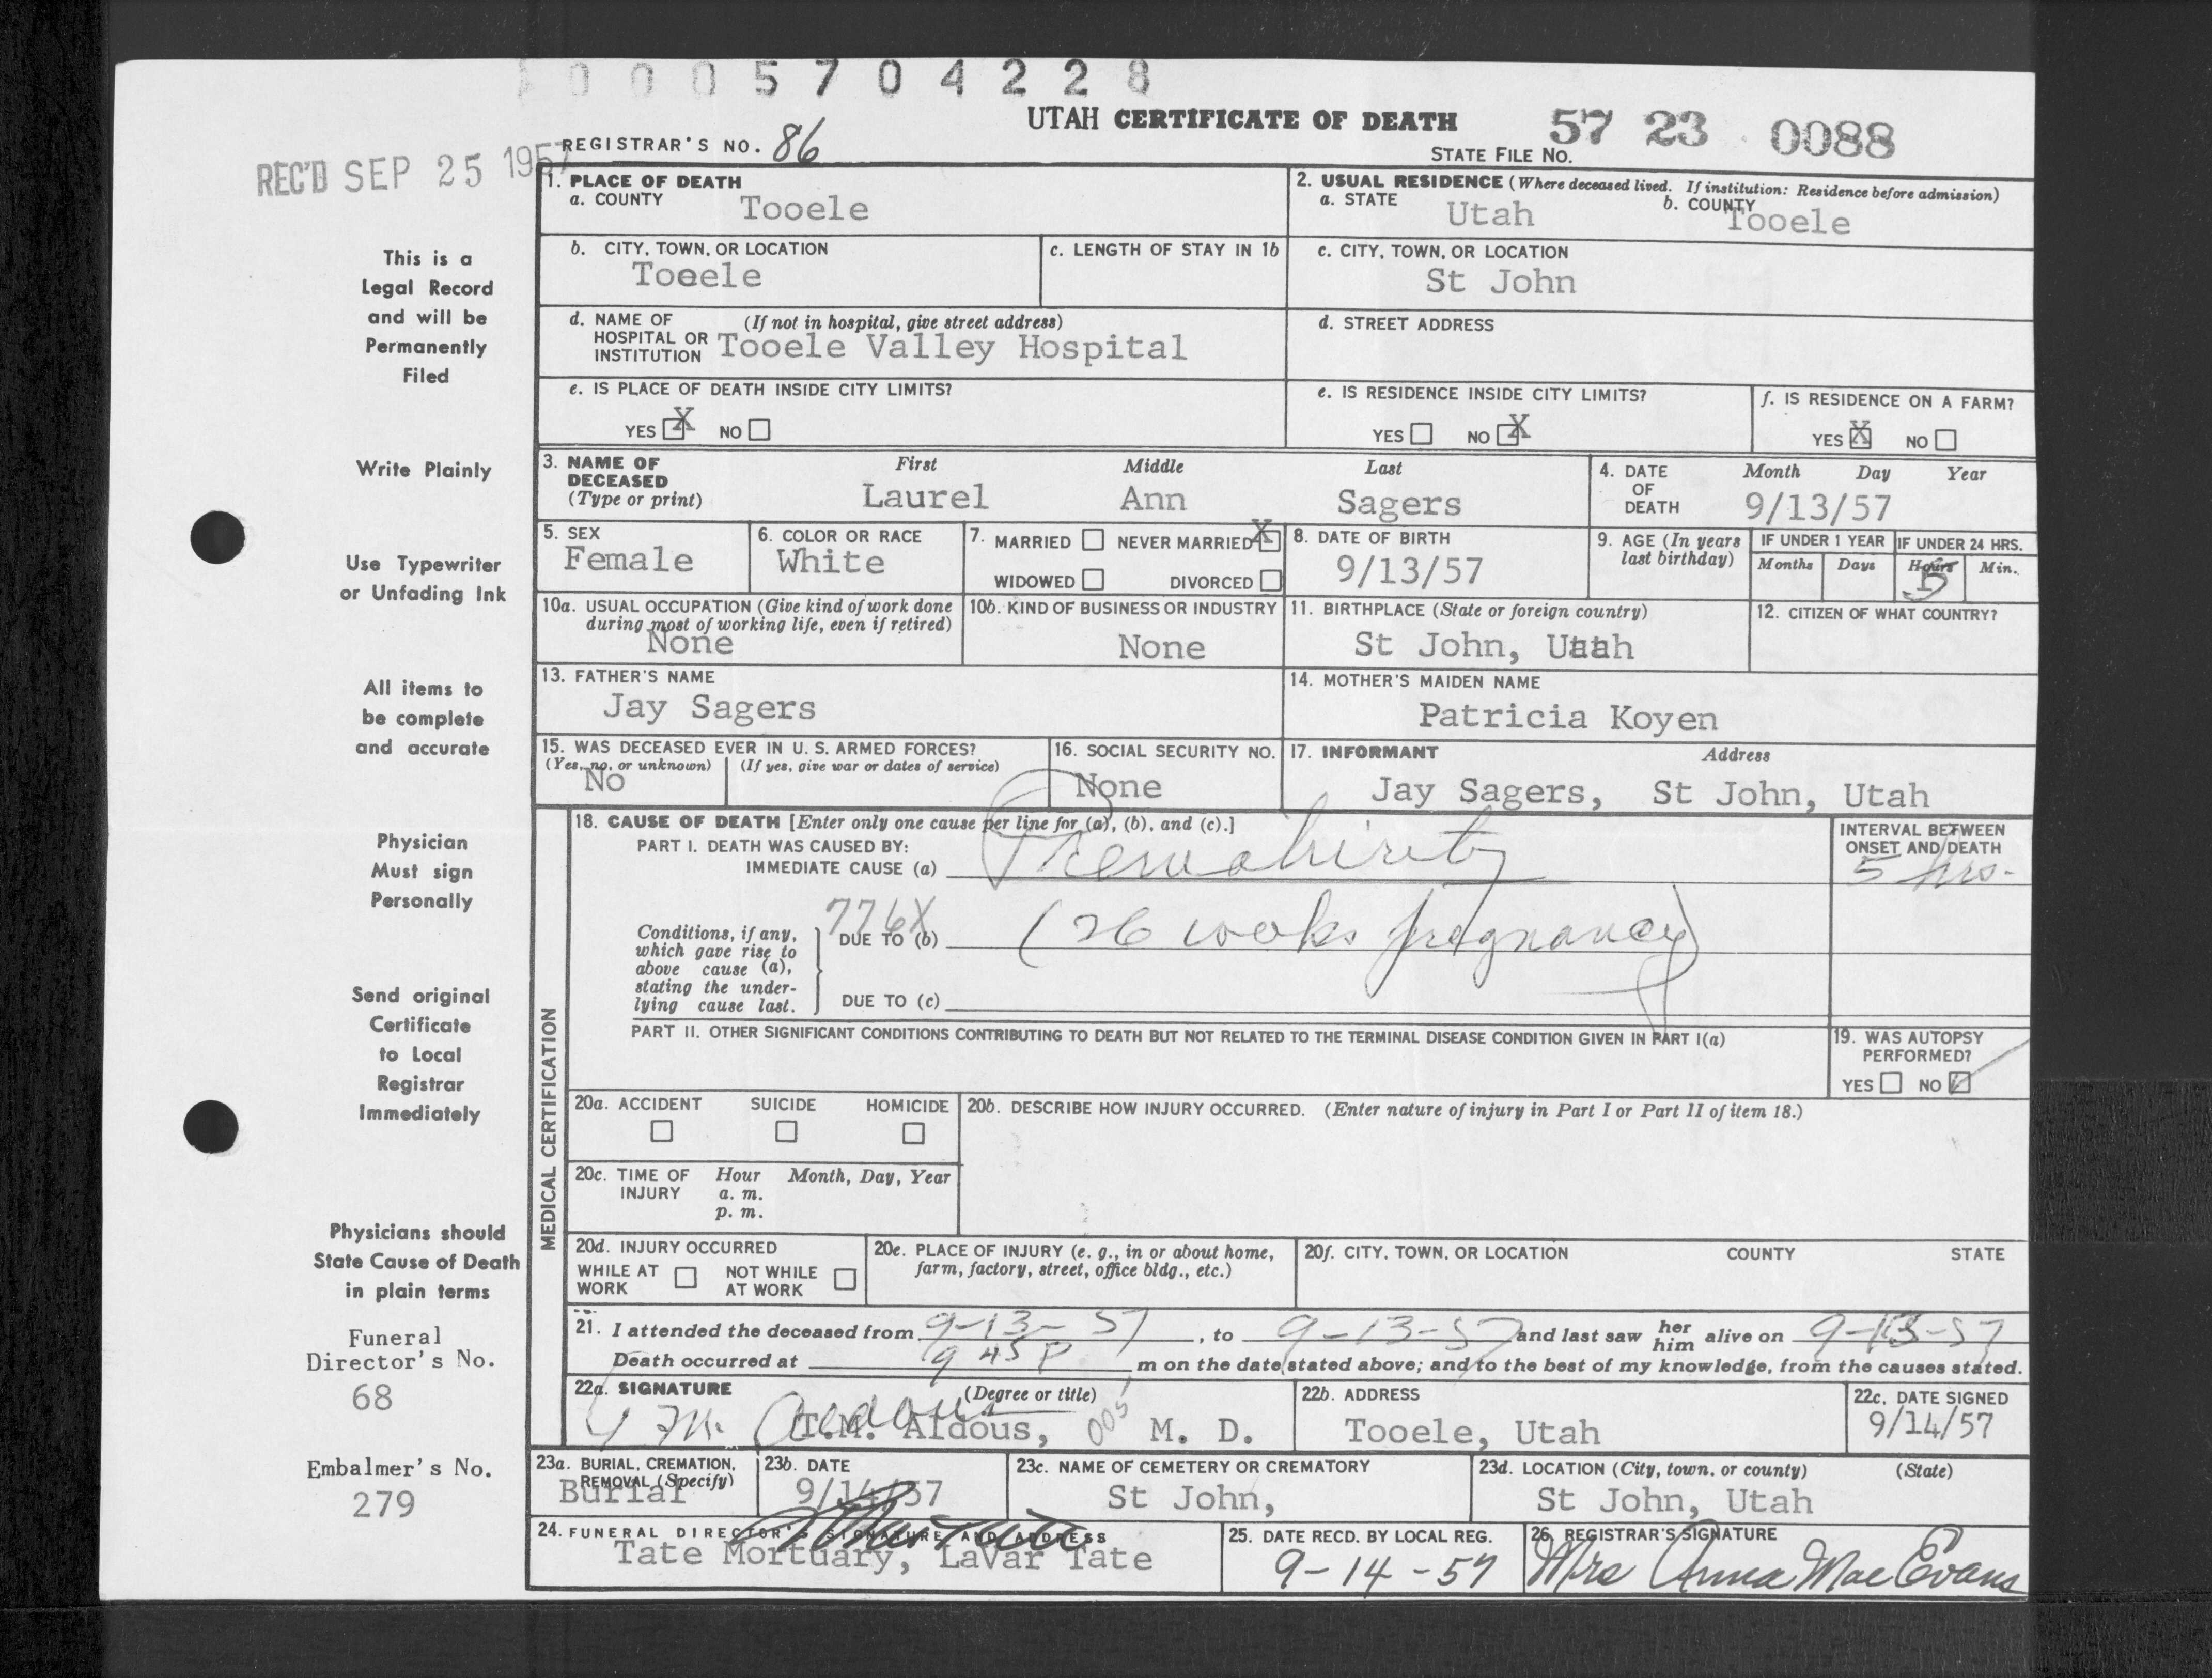 0005704228
UTAH CERTIFICATE OF DEATH
57 23 0088
REGISTRAR'S NO. 86
STATE FILE NO.
REC'D SEP 25 1957
1. PLACE OF DEATH
a. COUNTY Tooele
2. USUAL RESIDENCE (Where deceased lived. If institution: Residence before admission)
a. STATE Utah b. COUNTY Tooele
b. CITY, TOWN, OR LOCATION
Toeele
c. LENGTH OF STAY IN 1b
c. CITY, TOWN, OR LOCATION
St John
d. NAME OF HOSPITAL OR INSTITUTION (If not in hospital, give street address)
Tooele Valley Hospital
d. STREET ADDRESS
e. IS PLACE OF DEATH INSIDE CITY LIMITS?
YES X NO
e. IS RESIDENCE INSIDE CITY LIMITS?
YES NO X
f. IS RESIDENCE ON A FARM?
YES X NO
3. NAME OF DECEASED (Type or print)
First Middle Last
Laurel Ann Sagers
4. DATE OF DEATH Month Day Year
9/13/57
5. SEX
Female
6. COLOR OR RACE
White
7. MARRIED NEVER MARRIED X
WIDOWED DIVORCED
8. DATE OF BIRTH
9/13/57
9. AGE (In years last birthday)
IF UNDER 1 YEAR
Months Days
IF UNDER 24 HRS.
Hours Min.
5
10a. USUAL OCCUPATION (Give kind of work done during most of working life, even if retired)
None
10b. KIND OF BUSINESS OR INDUSTRY
None
11. BIRTHPLACE (State or foreign country)
St John, Utah
12. CITIZEN OF WHAT COUNTRY?
13. FATHER'S NAME
Jay Sagers
14. MOTHER'S MAIDEN NAME
Patricia Koyen
15. WAS DECEASED EVER IN U. S. ARMED FORCES?
(Yes, no, or unknown) (If yes, give war or dates of service)
No
16. SOCIAL SECURITY NO.
None
17. INFORMANT Address
Jay Sagers, St John, Utah
MEDICAL CERTIFICATION
18. CAUSE OF DEATH [Enter only one cause per line for (a), (b), and (c).]
PART I. DEATH WAS CAUSED BY:
IMMEDIATE CAUSE (a) Prematurity
INTERVAL BETWEEN ONSET AND DEATH
5 hrs.
776X
Conditions, if any, which gave rise to above cause (a), stating the underlying cause last.
DUE TO (b) (26 weeks pregnancy)
DUE TO (c)
PART II. OTHER SIGNIFICANT CONDITIONS CONTRIBUTING TO DEATH BUT NOT RELATED TO THE TERMINAL DISEASE CONDITION GIVEN IN PART I(a)
19. WAS AUTOPSY PERFORMED?
YES NO ✓
20a. ACCIDENT SUICIDE HOMICIDE
20b. DESCRIBE HOW INJURY OCCURRED. (Enter nature of injury in Part I or Part II of item 18.)
20c. TIME OF INJURY Hour Month, Day, Year
a. m.
p. m.
20d. INJURY OCCURRED
WHILE AT WORK NOT WHILE AT WORK
20e. PLACE OF INJURY (e. g., in or about home, farm, factory, street, office bldg., etc.)
20f. CITY, TOWN, OR LOCATION COUNTY STATE
21. I attended the deceased from 9-13-57, to 9-13-57 and last saw her him alive on 9-13-57
Death occurred at 9 45 P m on the date stated above; and to the best of my knowledge, from the causes stated.
22a. SIGNATURE (Degree or title)
T.M. Aldous, M. D.
005
22b. ADDRESS
Tooele, Utah
22c. DATE SIGNED
9/14/57
23a. BURIAL, CREMATION, REMOVAL (Specify)
Burial
23b. DATE
9/14/57
23c. NAME OF CEMETERY OR CREMATORY
St John,
23d. LOCATION (City, town, or county) (State)
St John, Utah
24. FUNERAL DIRECTOR'S SIGNATURE AND ADDRESS
Tate Mortuary, LaVar Tate
25. DATE RECD. BY LOCAL REG.
9-14-57
26. REGISTRAR'S SIGNATURE
Mrs Anna Mae Evans
This is a
Legal Record
and will be
Permanently
Filed
Write Plainly
Use Typewriter
or Unfading Ink
All items to
be complete
and accurate
Physician
Must sign
Personally
Send original
Certificate
to Local
Registrar
Immediately
Physicians should
State Cause of Death
in plain terms
Funeral
Director's No.
68
Embalmer's No.
279